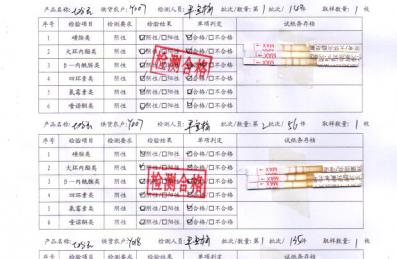 产品名称: 供货农户: Y007 检测人员: 批次/数量: 第1批次/ 件 取样数量: 1 枚
序号 检验项目 检测要求 检验结果 单项判定 试纸条存根
1 磺胺类 阴性 ☑阴性/□阳性 ☑合格/□不合格
2 大环内酯类 阴性 ☑阴性/□阳性 ☑合格/□不合格
3 β-内酰胺类 阴性 ☑阴性/□阳性 ☑合格/□不合格
4 四环素类 阴性 ☑阴性/□阳性 ☑合格/□不合格
5 氟霉素类 阴性 ☑阴性/□阳性 ☑合格/□不合格
6 喹诺酮类 阴性 ☑阴性/□阳性 ☑合格/□不合格
检测合格
MAX
产品名称: 供货农户: Y007 检测人员: 批次/数量: 第2批次/56件 取样数量: 1 枚
序号 检验项目 检测要求 检验结果 单项判定 试纸条存根
1 磺胺类 阴性 ☑阴性/□阳性 ☑合格/□不合格
2 大环内酯类 阴性 ☑阴性/□阳性 ☑合格/□不合格
3 β-内酰胺类 阴性 ☑阴性/□阳性 ☑合格/□不合格
4 四环素类 阴性 ☑阴性/□阳性 ☑合格/□不合格
5 氟霉素类 阴性 ☑阴性/□阳性 ☑合格/□不合格
6 喹诺酮类 阴性 ☑阴性/□阳性 ☑合格/□不合格
检测合格
MAX
产品名称: 供货农户: Y08 检测人员: 批次/数量: 第1批次/ 件 取样数量: 1 枚
序号 检验项目 检测要求 检验结果 单项判定 试纸条存根